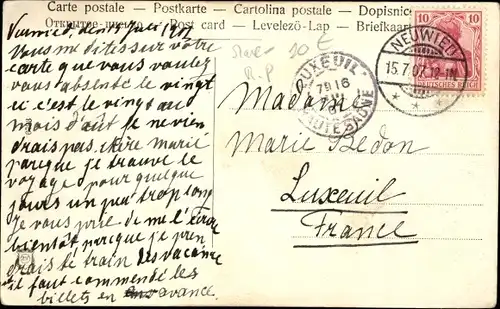 Carte postale – Postkarte – Cartolina postale – Dopisnic
Открытое письмо – Post card – Levelező-Lap – Briefkaart
Neuwied, den 15 Juli 1907
Vous me dites sur votre
carte que vous voulez
vous absenté le vingt
si c'est le vingt au
mois d'août je ne vien
drais pas chire marie
parque je trouve le
voyage pour quelque
jours un peu trop long
je vous prie de me l'écrire
bientôt parque je pren
drais le train des vacance
il faut commendé les
billets en avance.
10 10
DEUTSCHES REICH
NEUWIED
15.7.07.12-1N.
* * *
LUXEUIL
16
HTE SAONE
10 E
R.P
Madame
Marie Bedon
Luxeuil
France